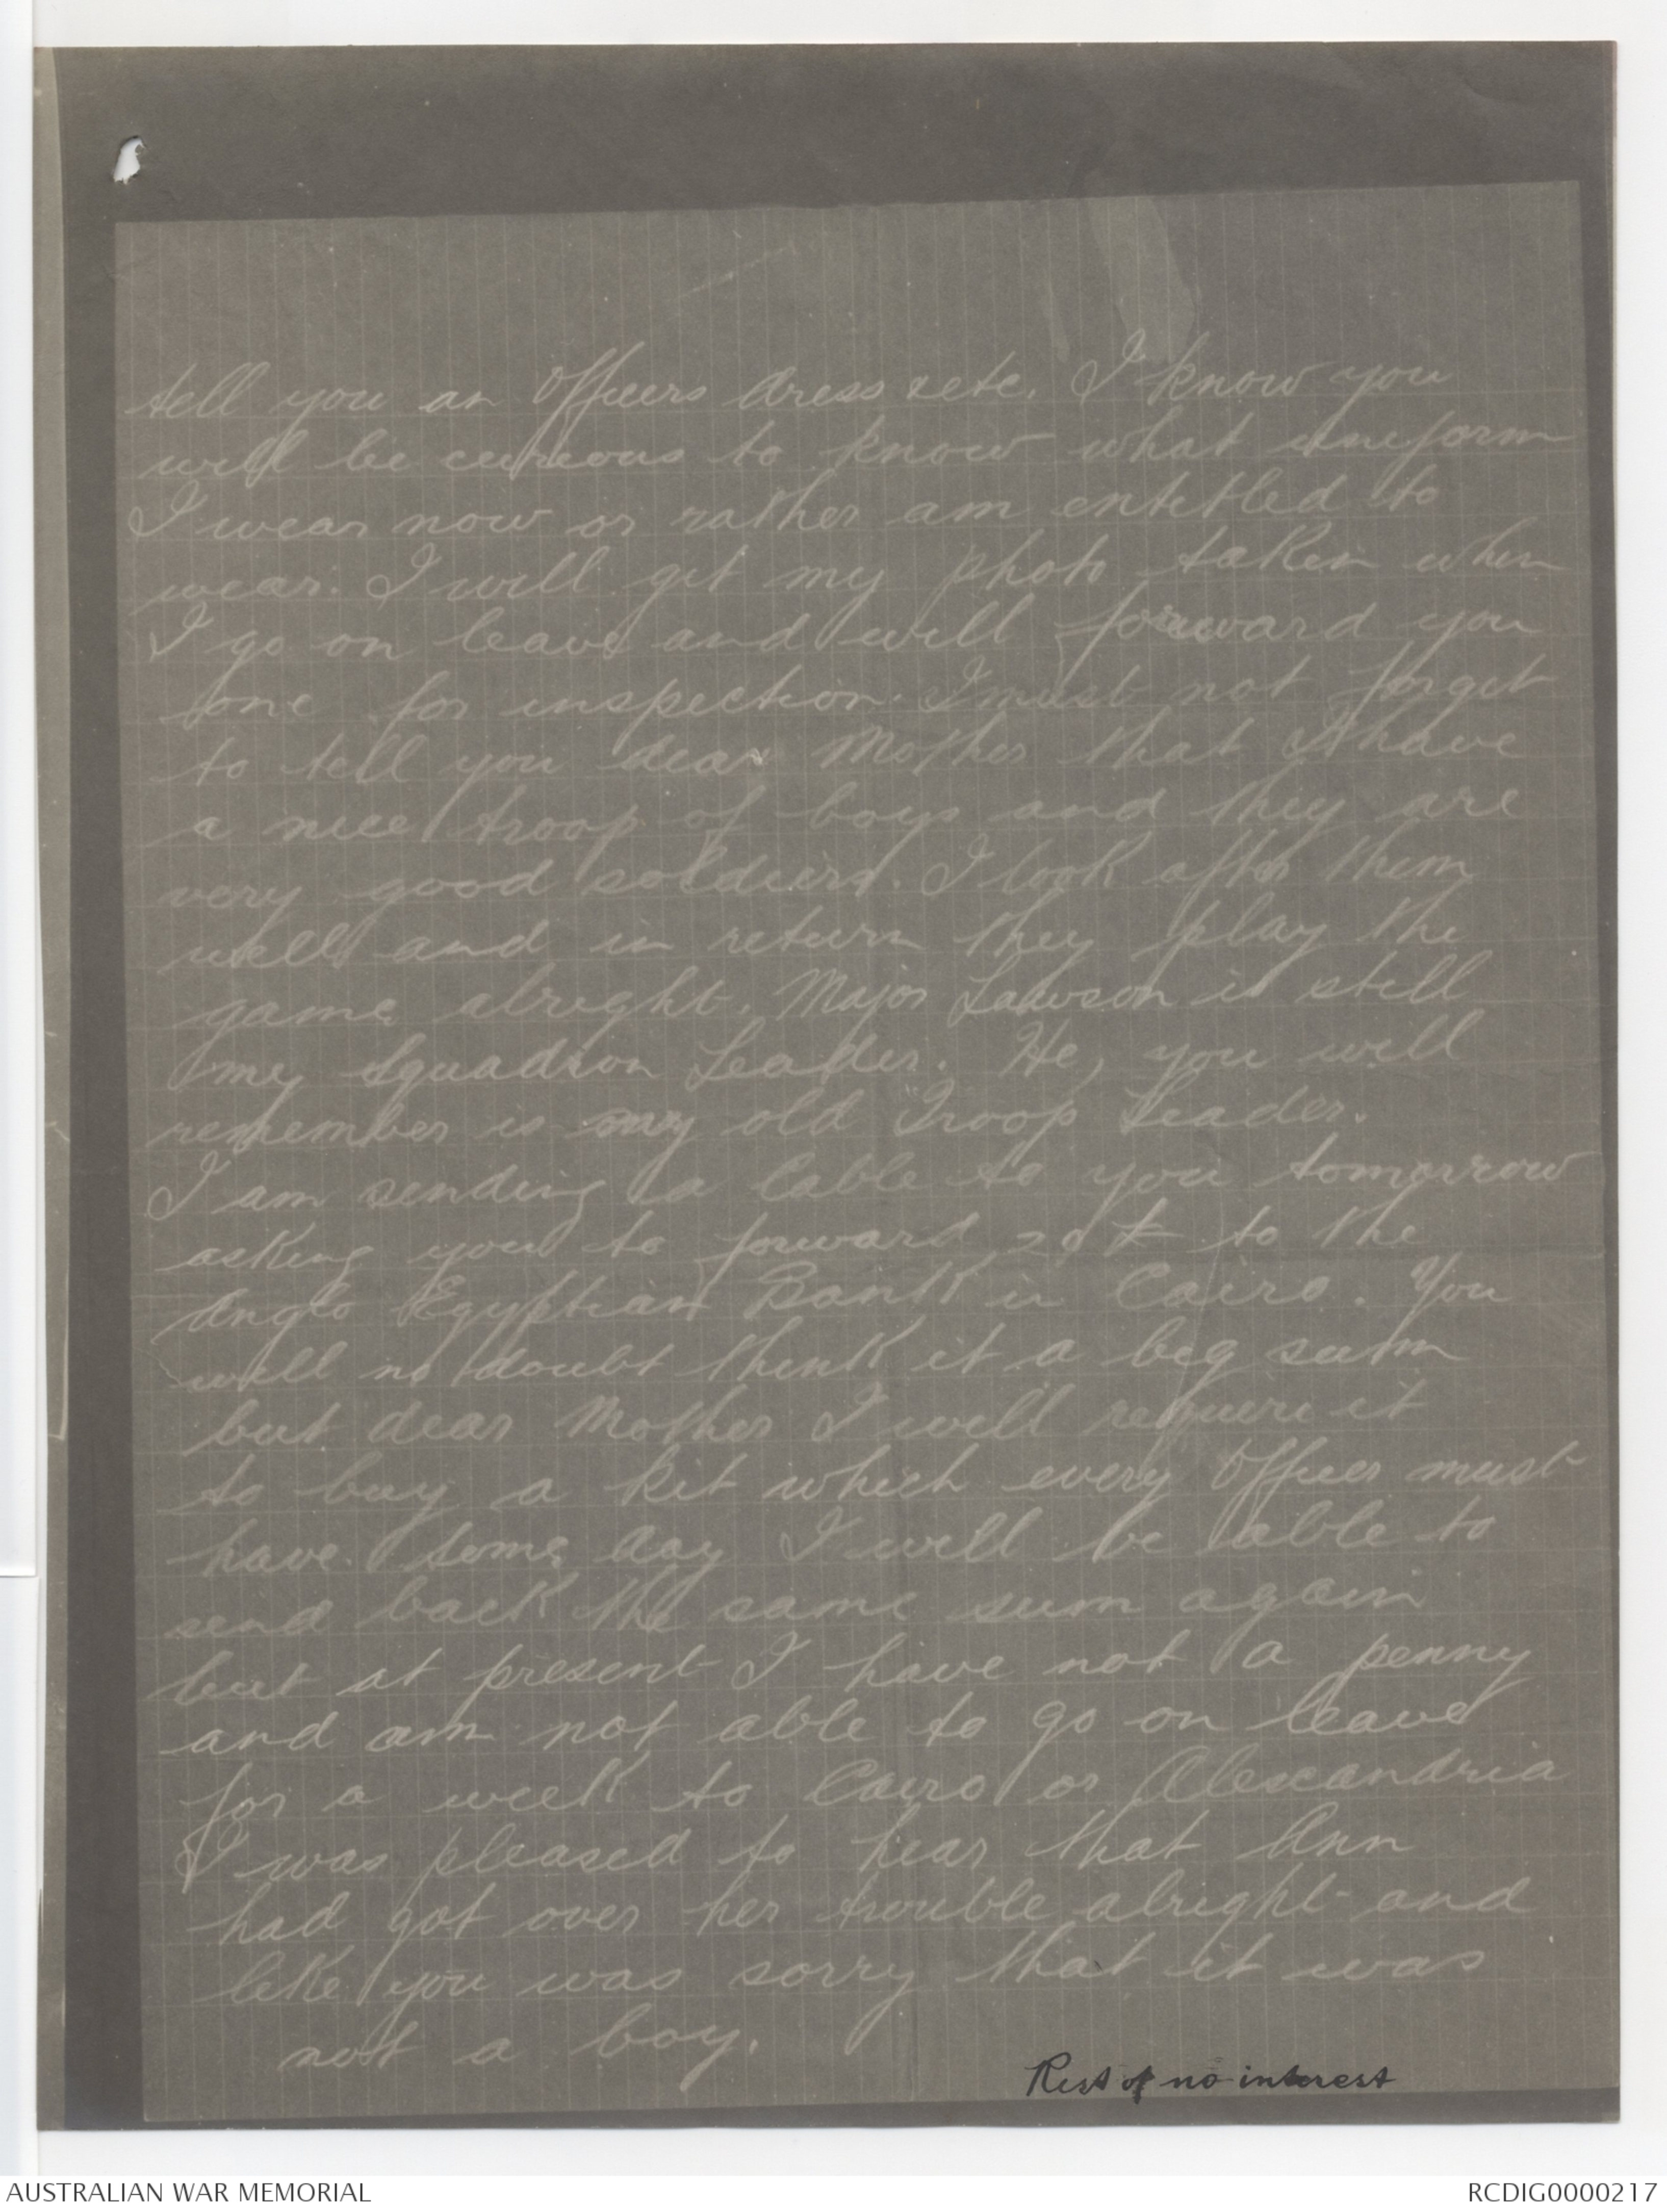 tell you an Officers dress &etc. I know you
will be curious to know what uniform
I wear now or rather am entitled to
wear. I will get my photo taken when
I go on leave and will forward you
one for inspection. I must not forget
to tell you dear Mother that I have
a nice troop of boys and they are
very good soldiers. I look after them
well and in return they play the
game alright. Major Lawson is still
my Squadron Leader. He, you will
remember is my old Troop Leader.
I am sending a Cable to you tomorrow
asking you to forward 20 £ to the
Anglo Egyptian Bank in Cairo. You
will no doubt think it a big sum
but dear Mother I will require it
to buy a kit which every Officer must
have. Some day I will be able to
send back the same sum again
but at present I have not a penny
and am not able to go on leave
for a week to Cairo or Alexandria
I was pleased to hear that Ann
had got over her trouble alright and
like you was sorry that it was
not a boy.
Rest of no interest
AUSTRALIAN WAR MEMORIAL
RCDIG0000217